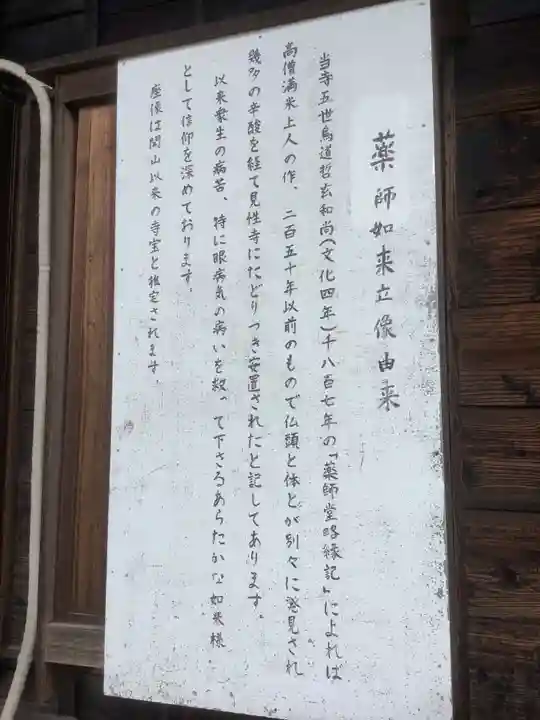 薬師如来立像由来
当寺五世鳥道哲玄和尚(文化四年)千八百七年の「薬師堂略縁記」によれば
高僧満米上人の作、二百五十年以前のもので仏頭と体とが別々に発見され
幾多の辛酸を経て見性寺にたどりつき安置されたと記してあります。
以来衆生の病苦、特に眼病気の病いを救って下さるあらたかな如来様
として信仰を深めております。
座像は開山以来の寺宝と推定されます。